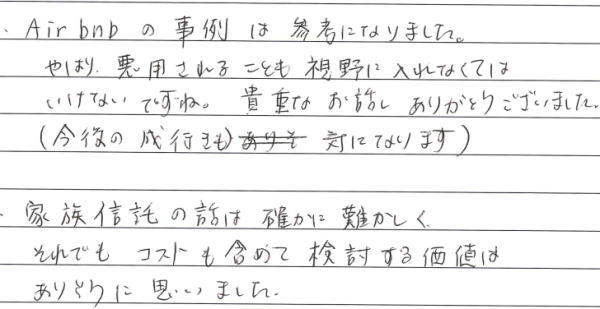 ・Airbnbの事例は参考になりました。
やはり、悪用されることも視野に入れなくては
いけないですね。貴重なお話しありがとうございました。
(今後の成行きも になります)
・家族信託の話は確かに難かしく、
それでもコストも含めて検討する価値は
ありそうに思いました。